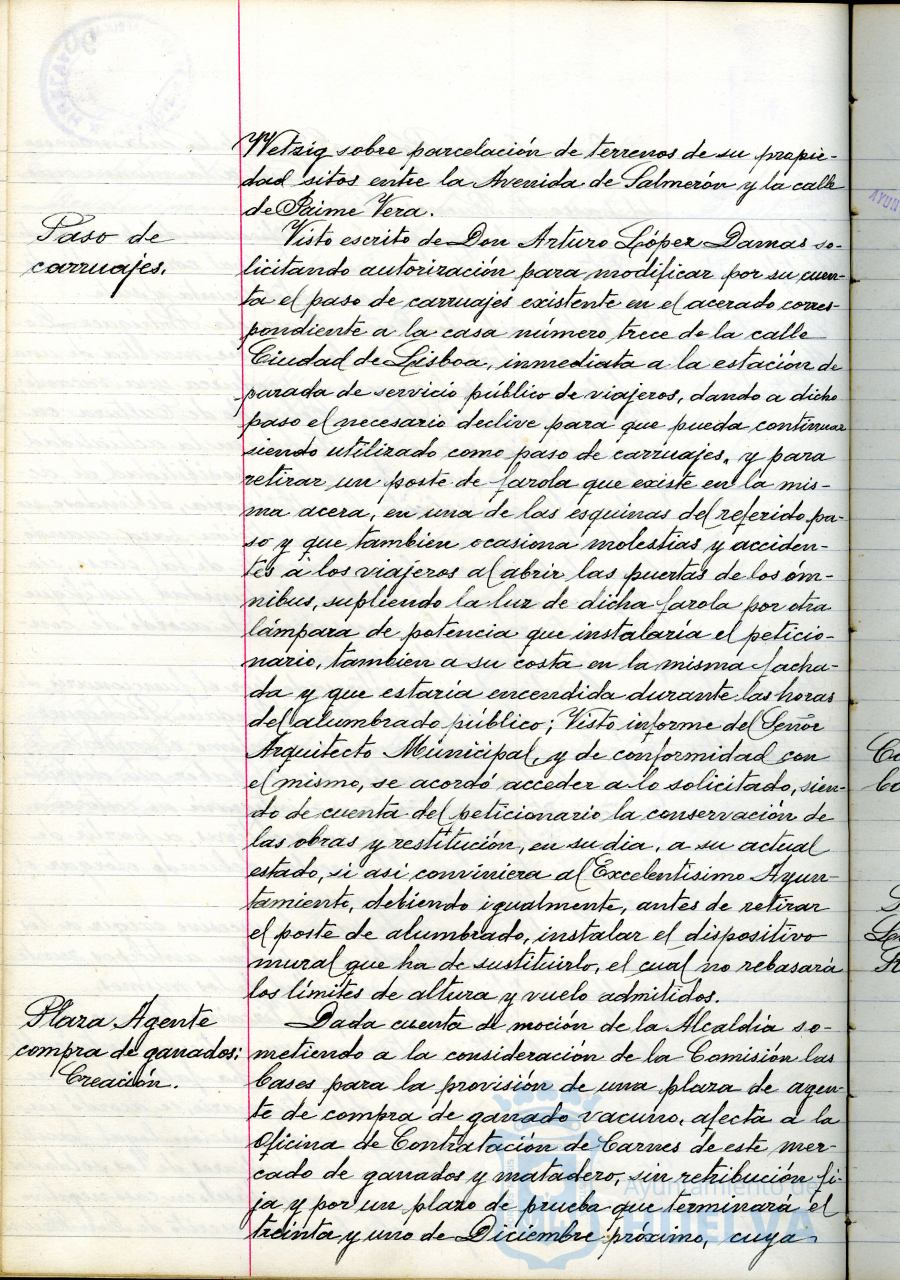 Wetzig sobre parcelación de terrenos de su propie-
dad sitos entre la Avenida de Salmerón y la calle
de Jaime Vera.
Paso de
carruajes.
Visto escrito de Don Arturo López Damas so-
licitando autorización para modificar por su cuen-
ta el paso de carruajes existente en el acerado corres-
pondiente a la casa número trece de la calle
Ciudad de Lisboa, inmediata a la estación de
parada de servicio público de viajeros, dando a dicho
paso el necesario declive para que pueda continuar
siendo utilizado como paso de carruajes, y para
retirar un poste de farola que existe en la mis-
ma acera, en una de las esquinas del referido pa-
so y que tambien ocasiona molestias y acciden-
tes á los viajeros al abrir las puertas de los óm-
nibus, supliendo la luz de dicha farola por otra
lámpara de potencia que instalaría el peticio-
nario, tambien a su costa en la misma facha-
da y que estaría encendida durante las horas
del alumbrado público; Visto informe del Señor
Arquitecto Municipal, y de conformidad con
el mismo, se acordó acceder a lo solicitado, sien-
do de cuenta del peticionario la conservación de
las obras y restitución, en su dia, a su actual
estado, si asi conviniera al Excelentisimo Ayun-
tamiento, debiendo igualmente, antes de retirar
el poste de alumbrado, instalar el dispositivo
mural que ha de sustituirlo, el cual no rebasará
los límites de altura y vuelo admitidos.
Plaza Agente
compra de ganados:
Creación.
Dada cuenta de moción de la Alcaldía so-
metiendo a la consideración de la Comisión las
bases para la provisión de una plaza de agen-
te de compra de ganado vacuno, afecta a la
Oficina de Contratación de Carnes de este mer-
cado de ganados y matadero, sin retribución fi-
ja y por un plazo de prueba que terminará el
treinta y uno de Diciembre próximo, cuya
Ayuntamiento de
HUELVA